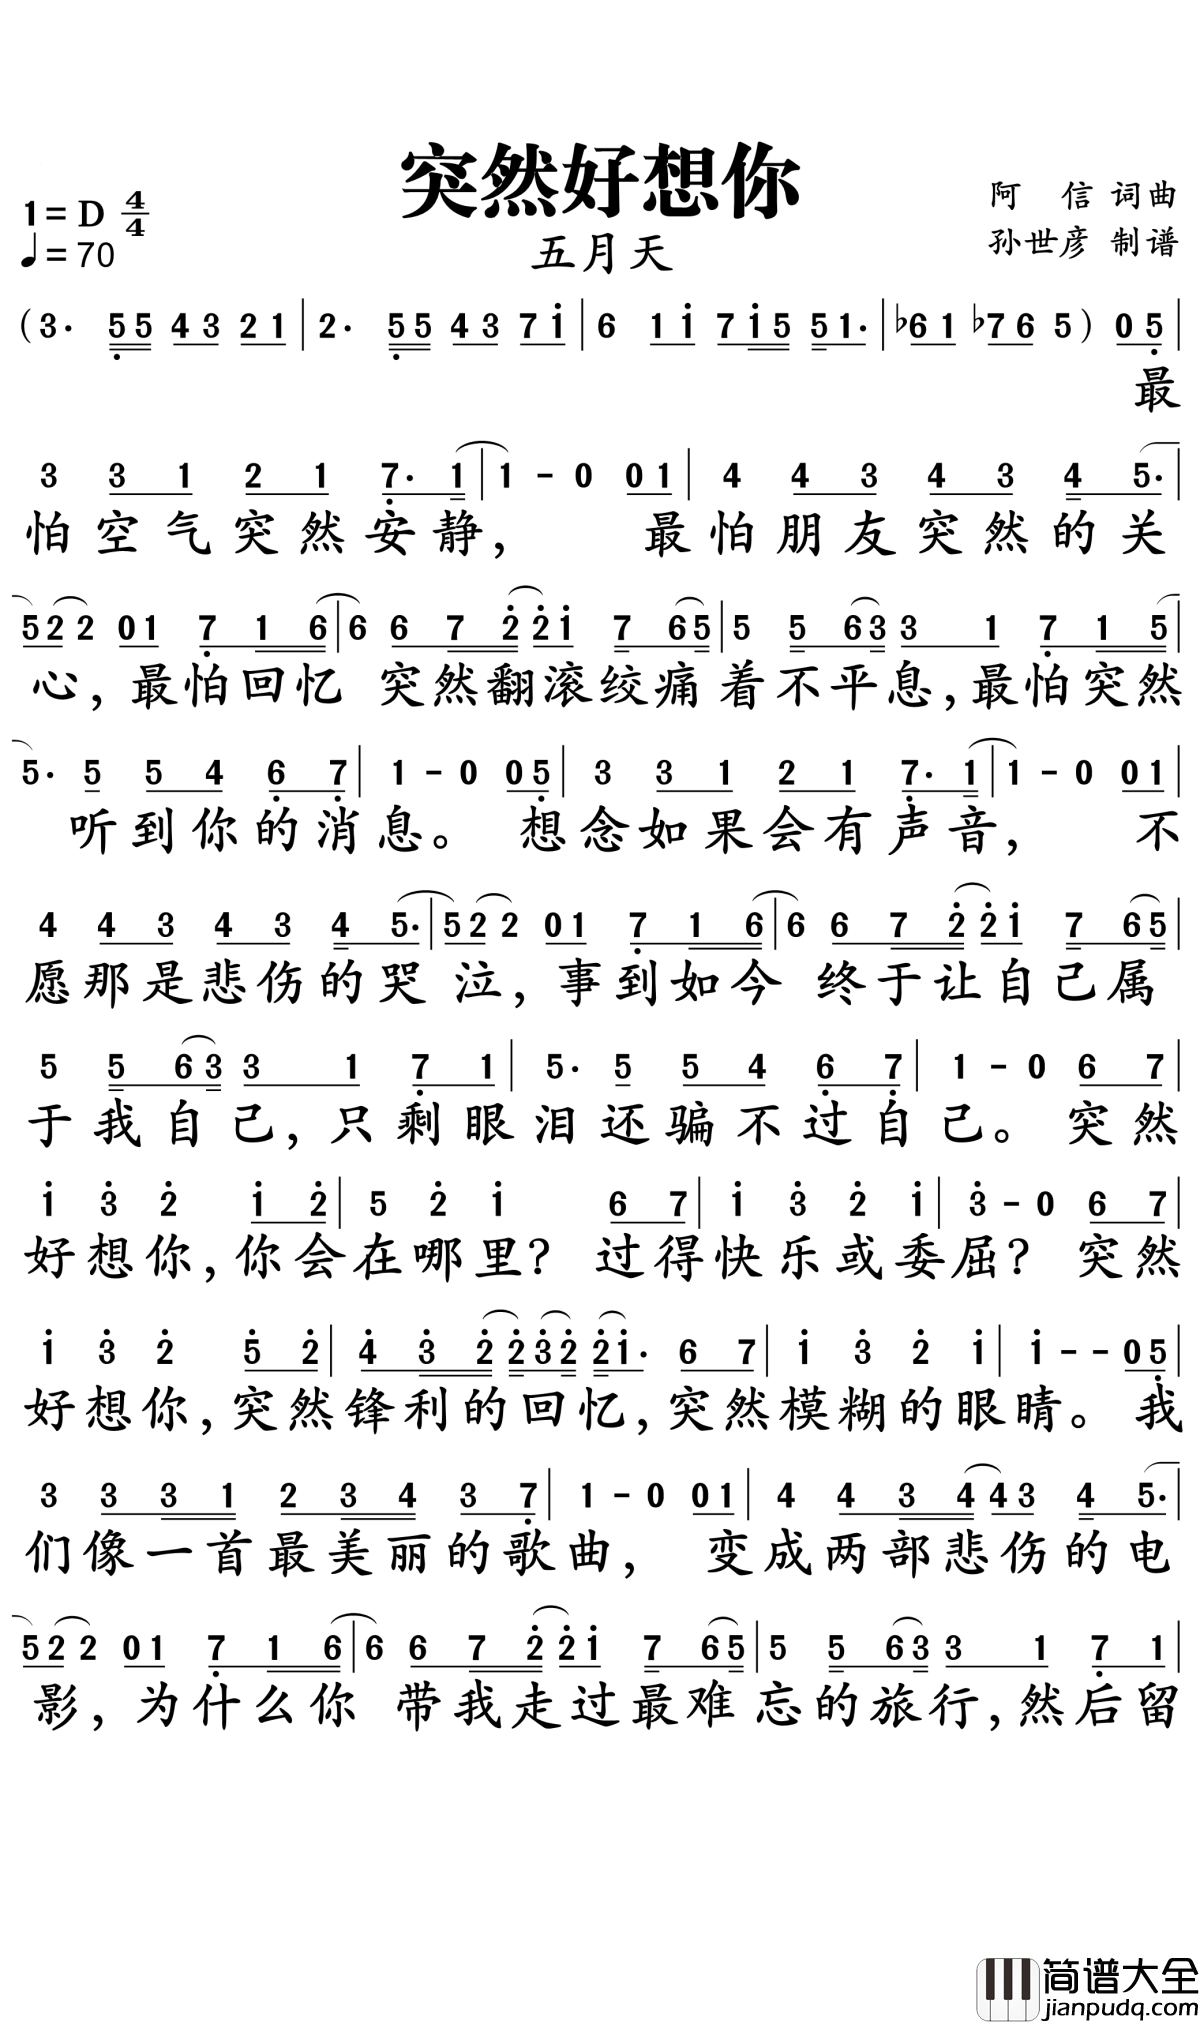 突然好想你
1=D 4/4
♩=70
五月天
阿 信 词曲
孙世彦 制谱
(3· 55 43 21 | 2· 55 43 7i | 6 1i 7i5 51· | ♭61 ♭76 5) 05 |
最
3 31 21 7·1 | 1 - 0 01 | 4 43 43 45· |
怕空气突然安静, 最怕朋友突然的关
522 01 716 | 6 672 2i 765 | 5 563 31 715 |
心,最怕回忆 突然翻滚绞痛着不平息,最怕突然
5· 5 54 67 | 1 - 0 05 | 3 31 21 7·1 | 1 - 0 01 |
听到你的消息。 想念如果会有声音, 不
4 43 43 45· | 522 01 716 | 6 672 2i 765 |
愿那是悲伤的哭泣,事到如今 终于让自己属
5 563 31 71 | 5· 5 54 67 | 1 - 0 67 |
于我自己,只剩眼泪还骗不过自己。突然
i 3 2 i2 | 5 2 i 67 | i 3 2 i | 3 - 0 67 |
好想你,你会在哪里?过得快乐或委屈?突然
i 3 2 52 | 432 232 2i· 67 | i 3 2 i | i - - 05 |
好想你,突然锋利的回忆,突然模糊的眼睛。我
3 331 234 37 | 1 - 0 01 | 4 434 43 45· |
们像一首最美丽的歌曲, 变成两部悲伤的电
522 01 716 | 6 672 2i 765 | 5 563 31 71 |
影,为什么你 带我走过最难忘的旅行,然后留
简谱大全
jianpudq.com